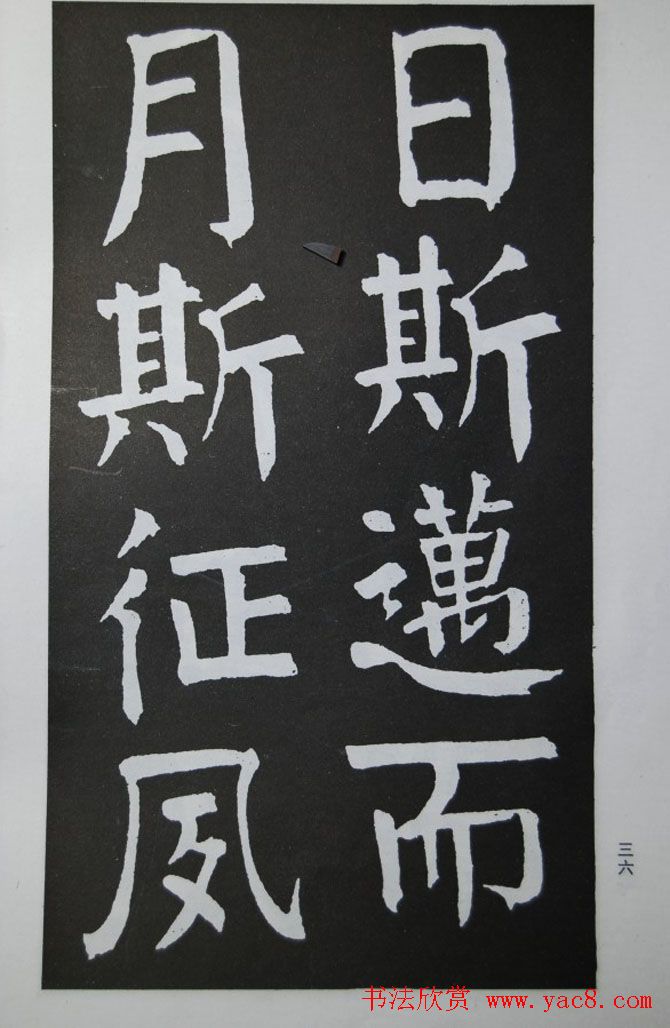 日斯邁而
月斯征夙
三六
书法欣赏 www.yac8.com